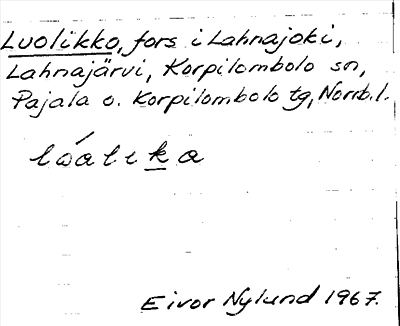 Luolikko, fors i Lahnajoki,
Lahnajärvi, Korpilombolo sn,
Pajala o. Korpilombolo tg, Norrb.l.
lóalika
Eivor Nylund 1967.